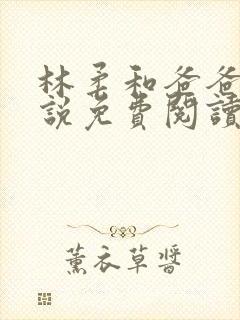 林柔和爸爸
說免費閱讀
薰衣草醬